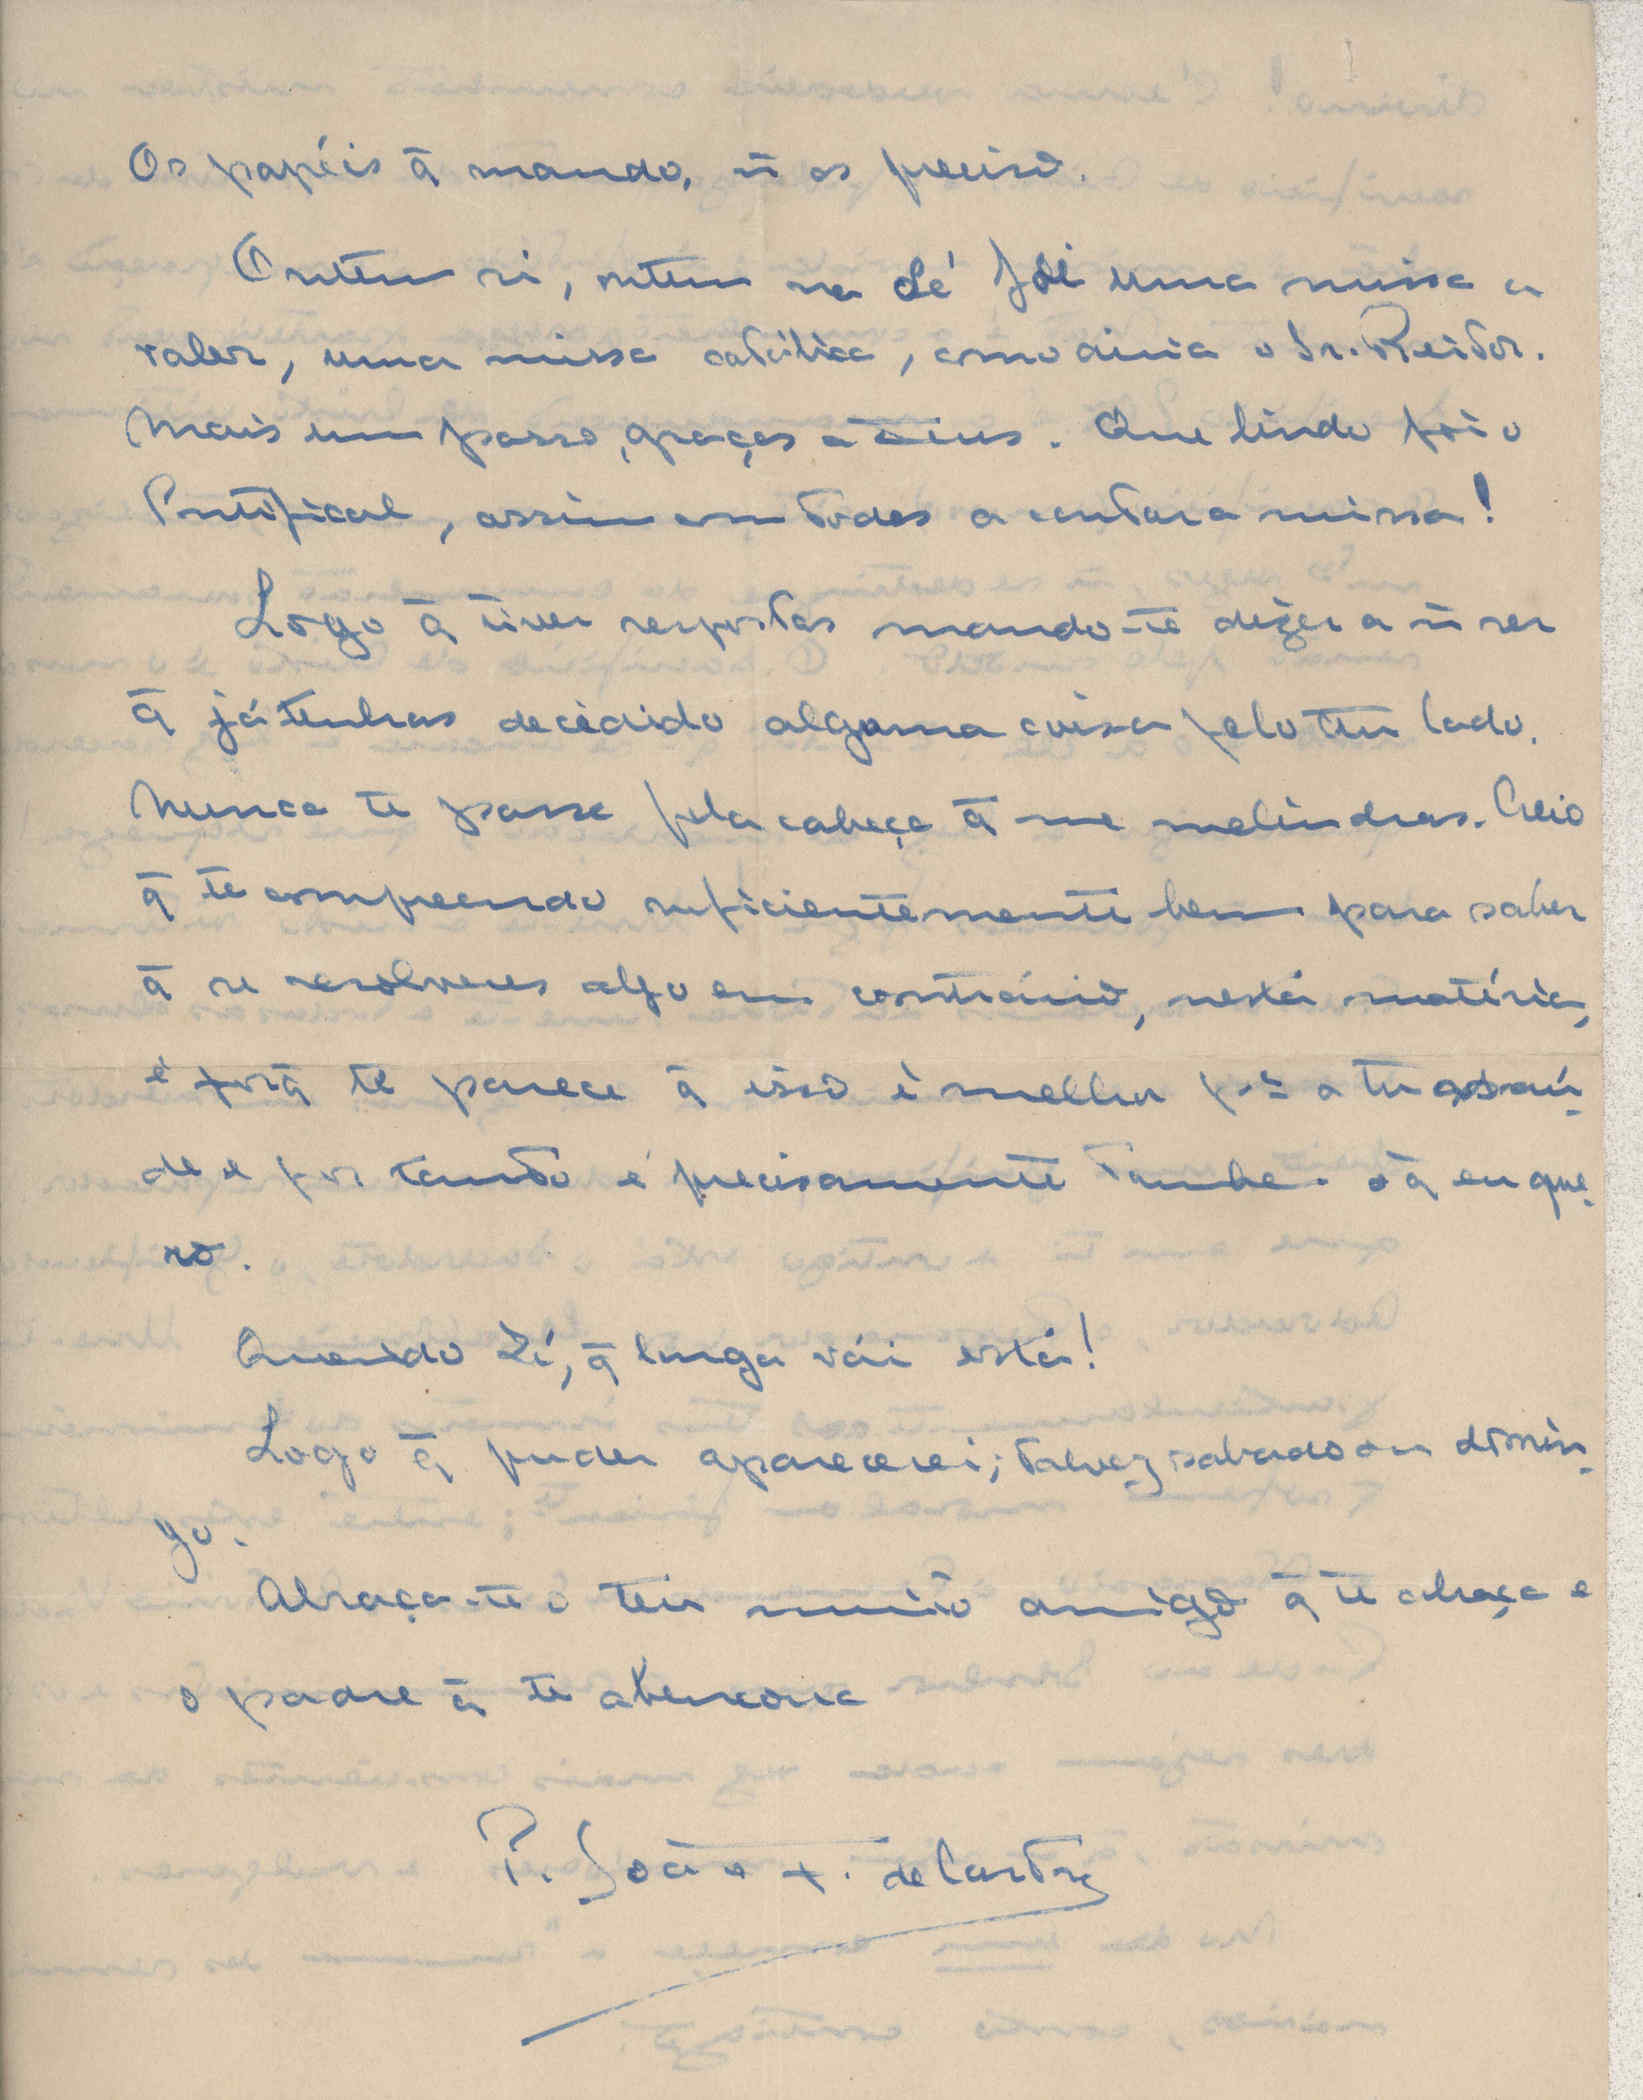 Os papéis q̄ mando, ñ os preciso.
Ontem si, ontem na Sé foi uma missa a
valer, uma missa católica, como diria o Sr. Reitor.
Mais um passo, graças a Deus. Que lindo foi o
Pontifical, assim com todos a cantar a missa!
Logo q̄ tiver respostas mando-te dizer a ñ ser
q̄ já tenhas decidido alguma coisa pelo teu lado.
Nunca te passe pela cabeça q̄ me melindras. Creio
q̄ te compreendo suficientemente bem para saber
q̄ se resolveres algo em contrário, nesta matéria,
é porq̄ te parece q̄ isso é melhor p.ª a tua saú-
de e por tanto é precisamente tambe. o q̄ eu que-
ro.
Querido Zé, q̄ longa vái esta!
Logo q̄ puder aparecerei; talvez sabado ou domin-
go.
Abraça-te o teu muito amigo q̄ te abraça e
o padre q̄ te abençoa
P. João + . de Castro